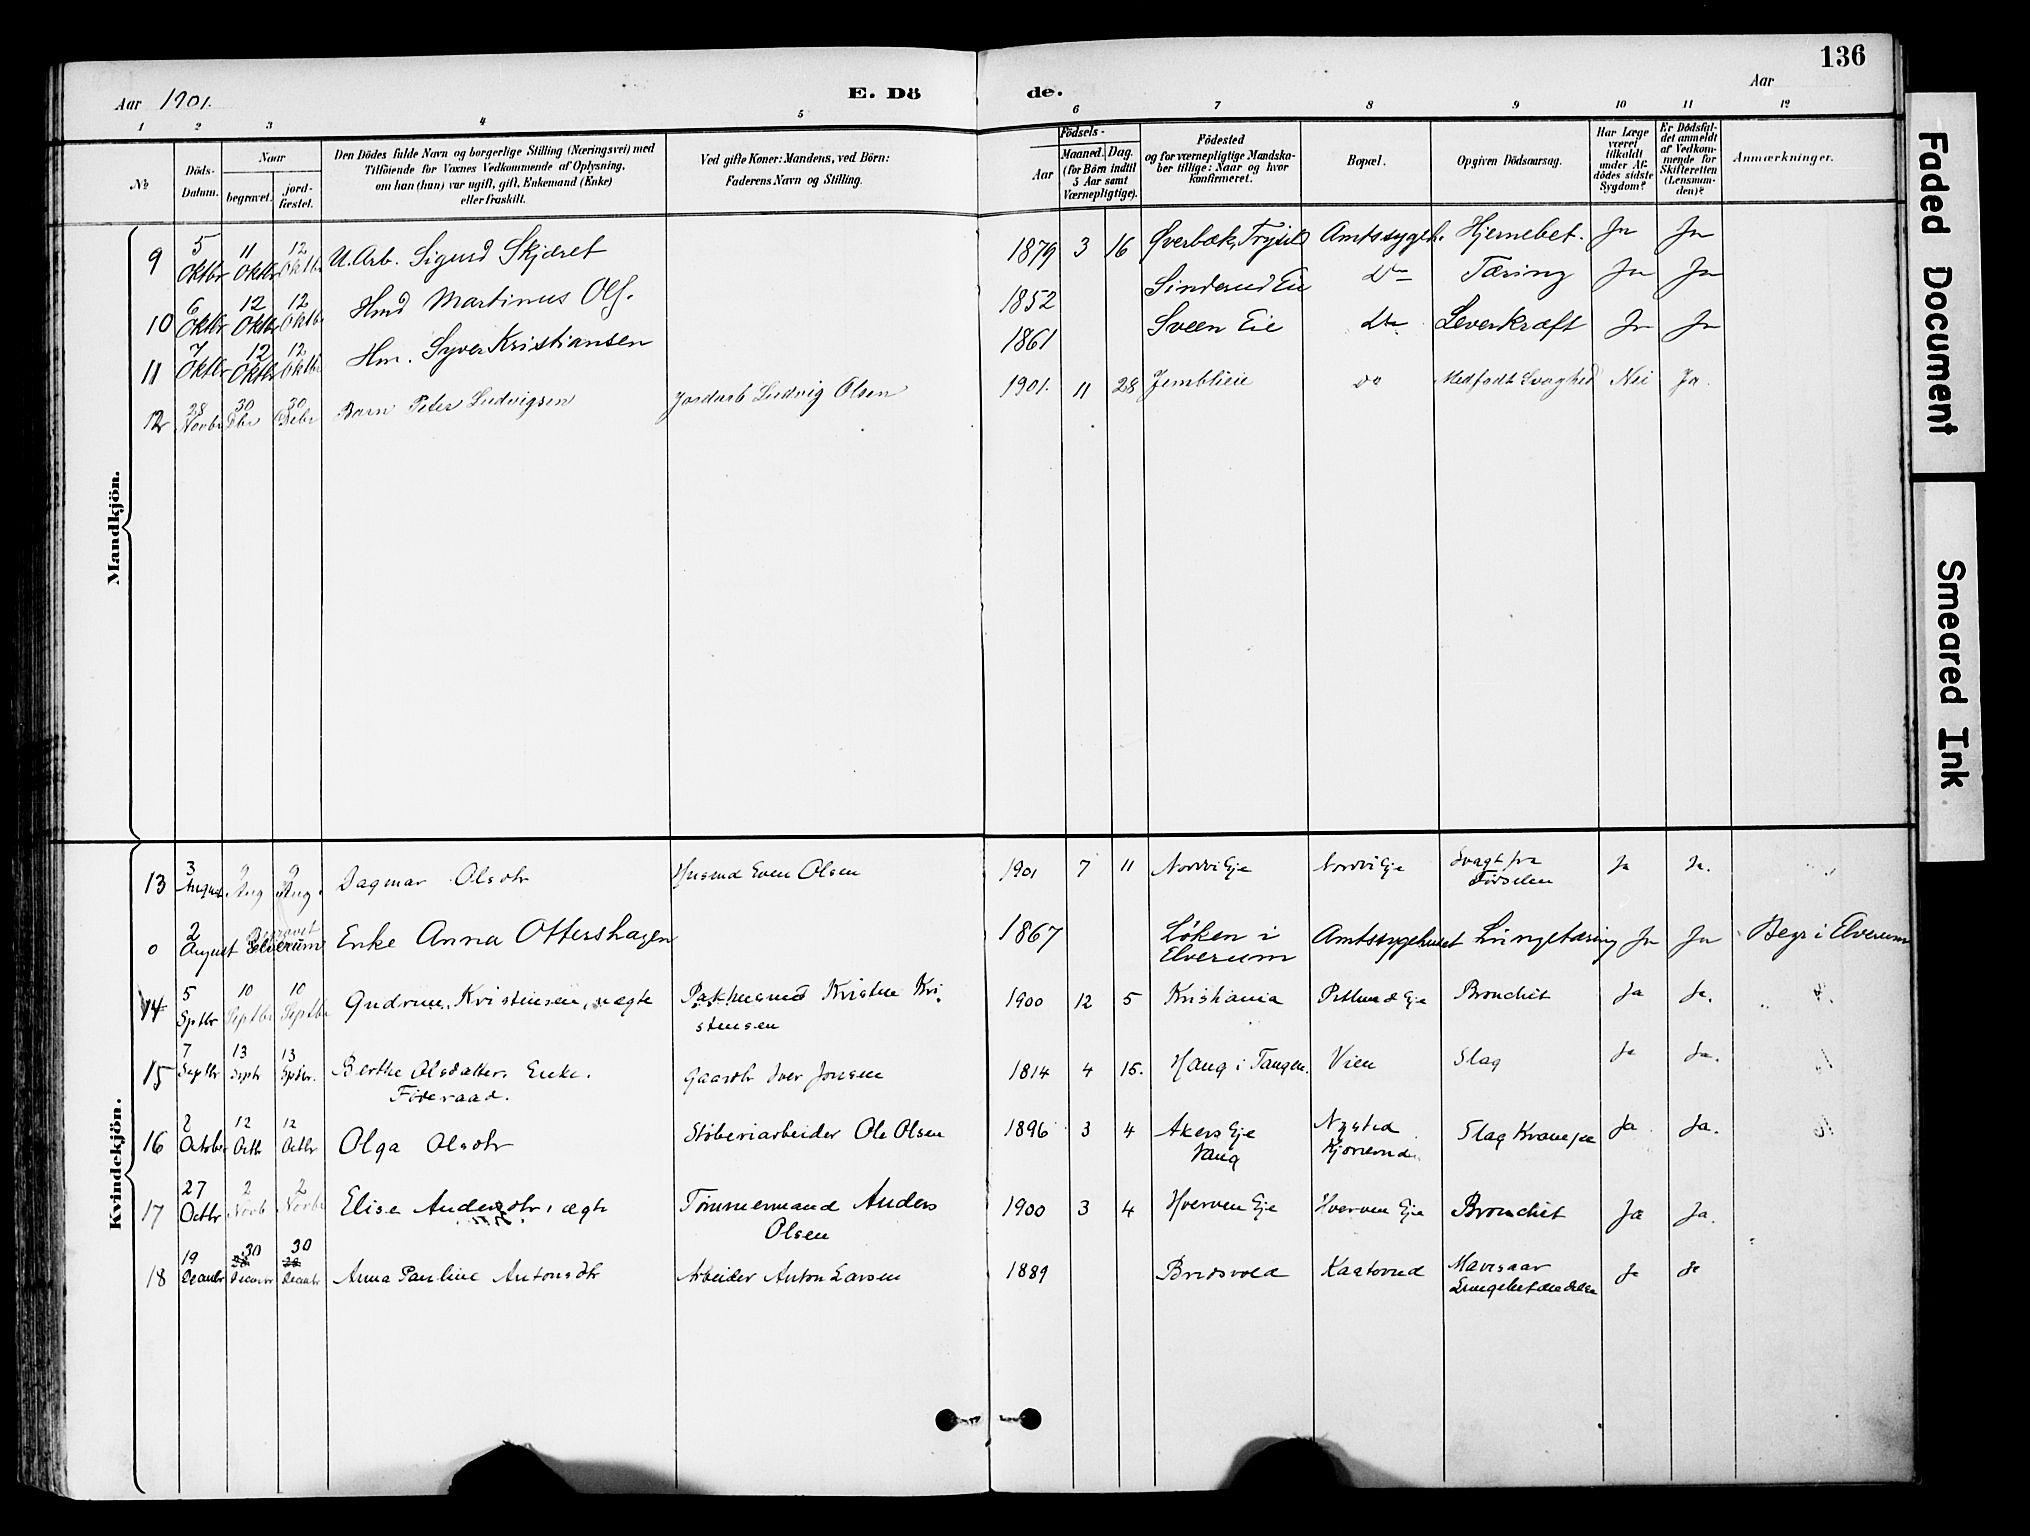 136
Aar 1901.
E. Dö de.
Aar
1 2 3 4 5 6 7 8 9 10 11 12
№
Döds-
Datum.
Naar
begravet.
jord-
fæstet.
Den Dödes fulde Navn og borgerlige Stilling (Næringsvei) med
Tilföiende for Voxnes Vedkommende af Oplysning,
om han (hun) var ugift, gift, Enkemand (Enke)
eller fraskilt.
Ved gifte Koner: Mandens, ved Börn:
Faderens Navn og Stilling.
Födsels-
Aar
Maaned. Dag.
(for Börn indtil
5 Aar samt
Værnepligtige).
Födested
og for værnepligtige Mandska-
ber tillige: Naar og hvor
konfirmeret.
Bopæl.
Opgiven Dödsaarsag.
Har Læge
været
tilkaldt
under Af-
dödes sidste
Sygdom?
Er Dödsfal-
det anmeldt
af Vedkom-
mende for
Skifteretten
(Lensman-
den)?
Anmærkninger.
Mandkjön.
9 5 Oktbr 11 Oktbr 12 Oktbr U. Arb. Sigurd Skjæret 1879 3 16 Øverbæk, Trysil Amtssygeh. Hjernebet. Ja Ja
10 6 Oktbr 12 Oktbr 12 Oktbr Hmd Martinus Ols. 1852 Sinderud Eie Do Tæring Ja Ja
11 7 Oktbr 12 Oktbr 12 Oktbr Hm. Syver Kristiansen 1861 Sveen Eie Do Leverkræft Ja Ja
12 28 Novbr 30 Dbr 30 Debr Barn Peter Ludvigsen Jordarb Ludvig Olsen 1901. 11 28 Jemblieie do Medfødt Svaghed Nei Ja.
Kvindekjön.
13 3 August 9 Aug 9 Aug. Dagmar Olsdtr Husmd Even Olsen 1901 7 11 Nordvi Eje Nordvi Eje Svagt fra
Fødselen Ja Ja.
0 2 August Begravet
Elverum Enke Anna Ottershagen 1867 Løken i
Elverum Amtssygehuset Lungetæring Ja Ja Begr i Elverum
14 5 Sptbr 10 Septbr 10 Septbr Gudrun Kristensen, uægte Kristen Kri
stensen 1900 12 5 Kristiania Eje Bronchit Ja Ja.
15 7 Septbr 13 Septr 13 Sptbr. Berthe Olsdatter, Enke.
Føderaad. Gaardbr Iver Jonsen 1814 4 15. Haug i Tangen. Vien Slag Ja Ja.
16 2 October 12 Octb 12 Octbr Olga Olsdtr Støberiarbeider Ole Olsen 1896 3 4 Akers Eje
Vang Nysted
Slag Ja Ja.
17 27 Octbr 2 Novb 2 Novbr Elise Andersdtr, ægte Tømmermand Anders
Olsen 1900 3 4 Hverven Eje Hverven Eje Bronchit Ja Ja.
18 19 Decembr 30 Decembr 30 Decembr Anna Pauline Antonsdtr Arbeider Anton Larsen 1889 Bredsvold Kaatorud Mavesaar
Lungebetændelse Ja Ja
Faded Document
Smeared Ink